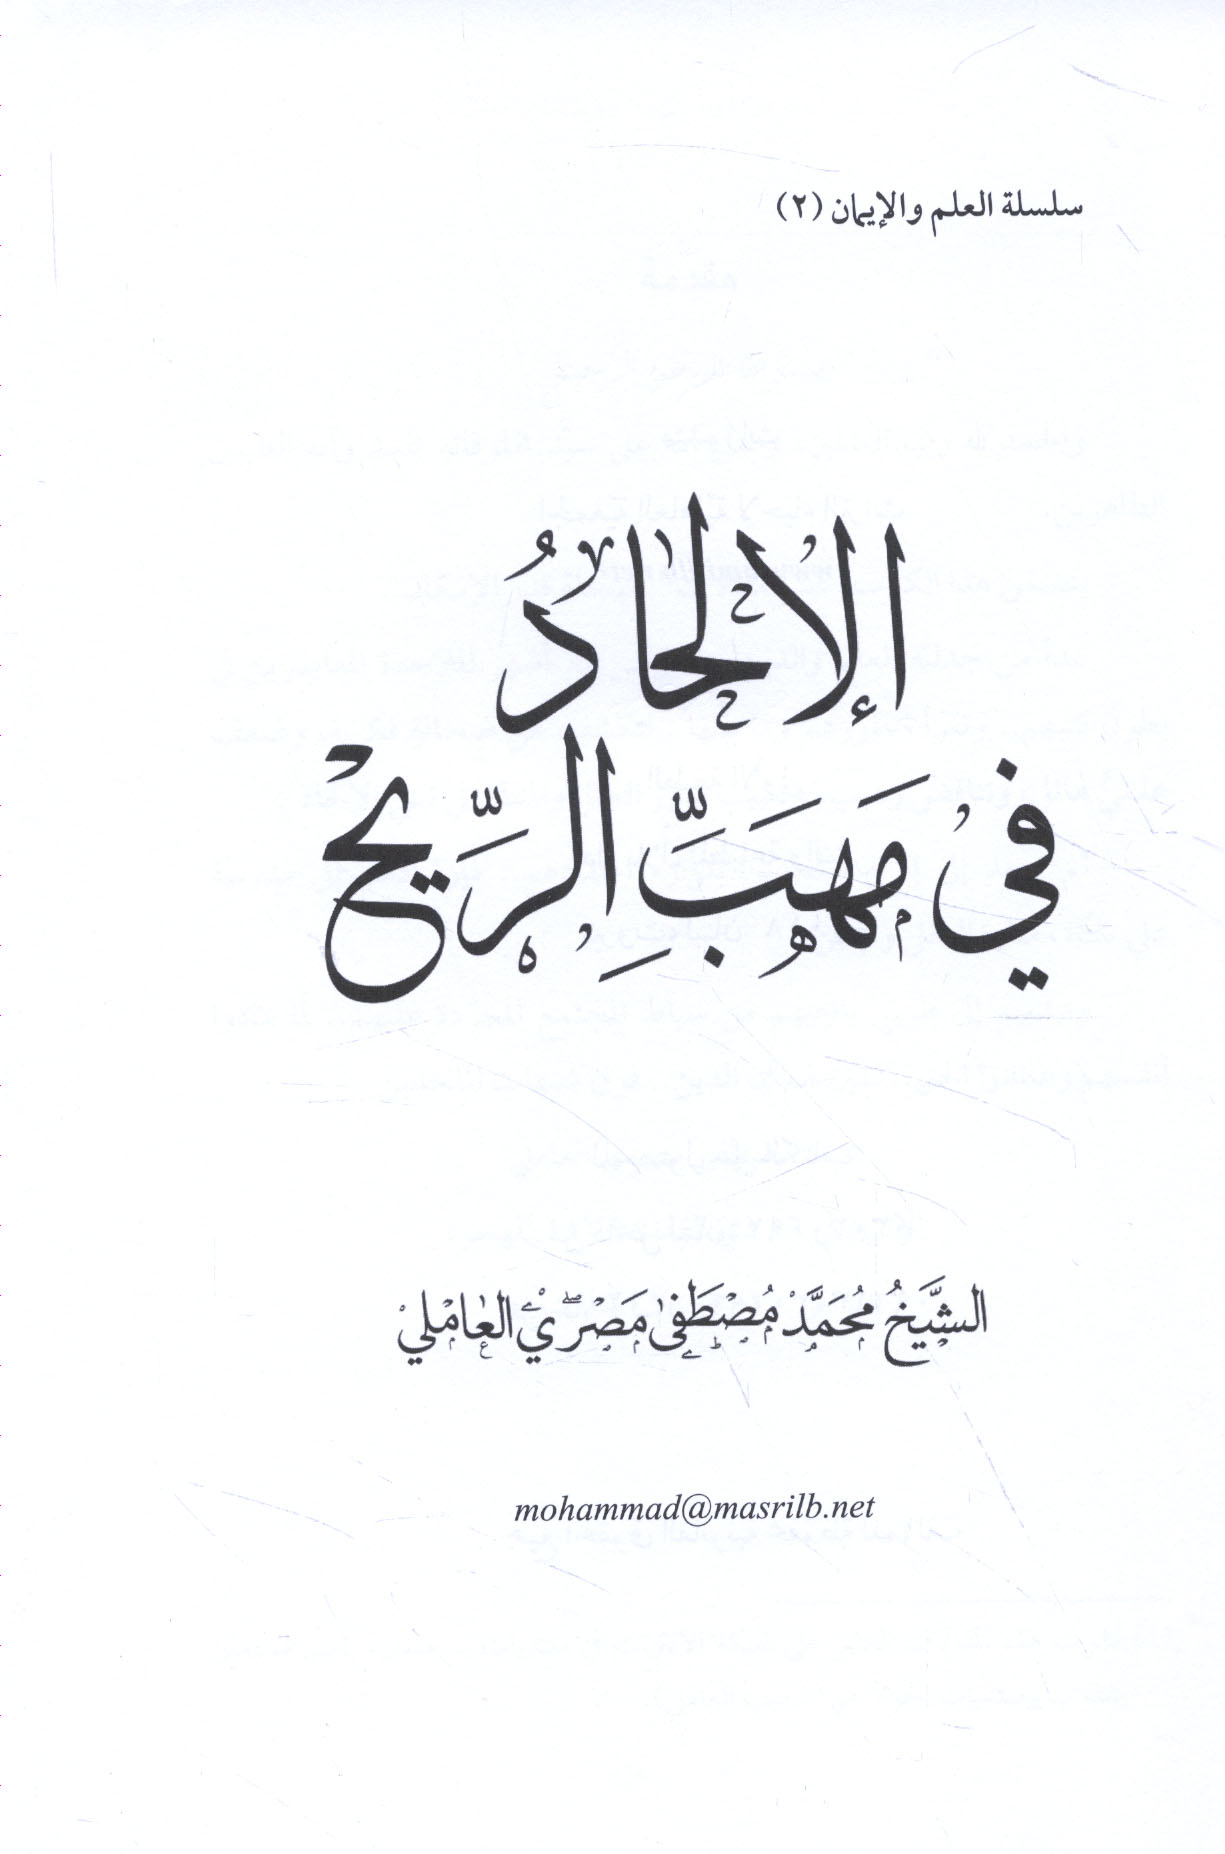 سلسلة العلم والإيمان (٢)
الإلحادُ
في مَهَبِّ الرِّيح
الشَّيخُ مُحَمَّدْ مُصْطَفىٰ مَصْرِيْ العٰامْليْ
mohammad@masrilb.net